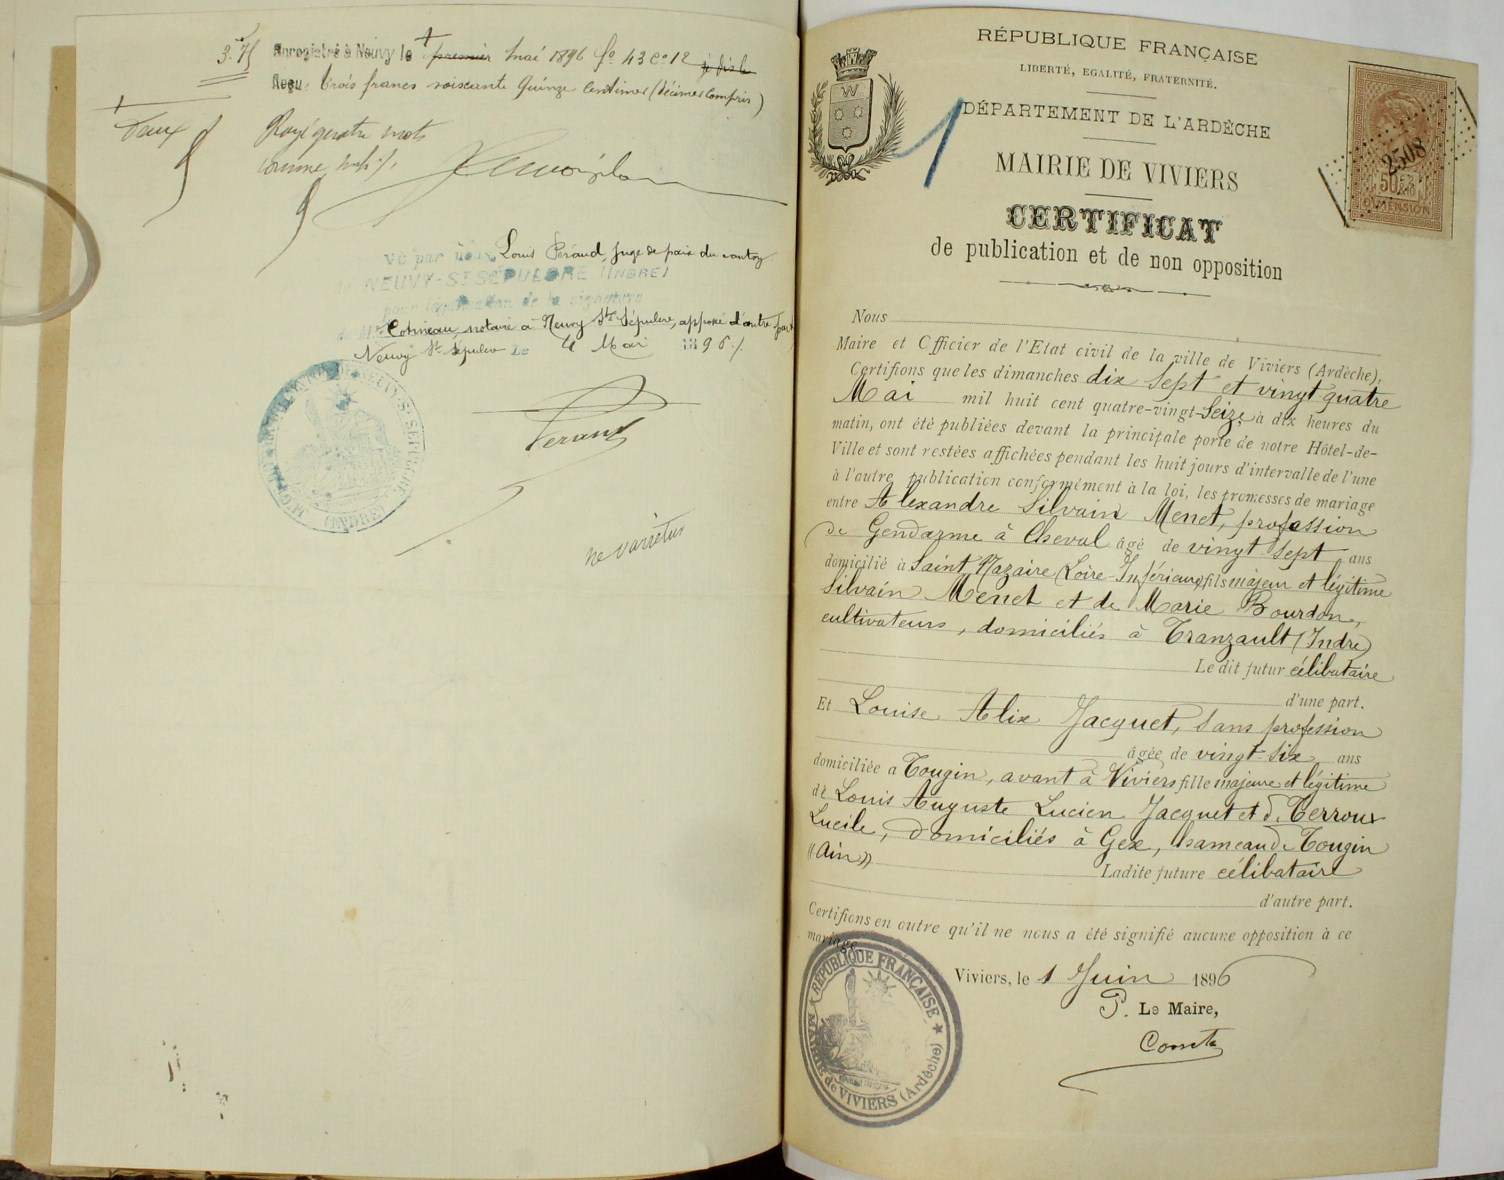 3.75
Enregistré à Neuvy le premier mai 1896 fo 43 co 12
Reçu trois francs soixante quinze centimes (décimes compris)
Rayé quatre mots
comme nuls
Vu par nous Louis Péraud, Juge de paix du canton
NEUVY-St SÉPULCRE (INDRE)
pour légalisation de la signature
de Me Cotineau, notaire à Neuvy St Sépulcre, apposé d'autre part
Neuvy St Sépulcre Le 4 Mai 1896
Péraud
ne varietur
RÉPUBLIQUE FRANÇAISE
LIBERTÉ, EGALITÉ, FRATERNITÉ.
DÉPARTEMENT DE L'ARDÈCHE
MAIRIE DE VIVIERS
CERTIFICAT
de publication et de non opposition
2508
50
DIMENSION
Nous
Maire et Officier de l'Etat civil de la ville de Viviers (Ardèche),
Certifions que les dimanches dix sept et vingt quatre
Mai mil huit cent quatre-vingt-Seize à dix heures du
matin, ont été publiées devant la principale porte de notre Hôtel-de-
Ville et sont restées affichées pendant les huit jours d'intervalle de l'une
à l'autre publication conformément à la loi, les promesses de mariage
entre Alexandre Silvain Menet, profession
de Gendarme à Cheval âgé de vingt sept ans
domicilié à Saint Nazaire (Loire-Inférieure) fils majeur et légitime
Silvain Menet et de Marie Bourdon,
cultivateurs, domiciliés à Tranzault (Indre)
Le dit futur célibataire
d'une part.
Et Louise Alix Jacquet, Sans profession
âgée de vingt-Six ans
domiciliée a Tougin, avant à Viviers fille majeure et légitime
de Louis Auguste Lucien Jacquet et de Terroux
Lucile, domiciliés à Gex, hameau de Tougin
(Ain)
Ladite future célibataire
d'autre part.
Certifions en outre qu'il ne nous a été signifié aucune opposition à ce
mariage
Viviers, le 1 Juin 1896
P. Le Maire,
RÉPUBLIQUE FRANÇAISE
MAIRIE de VIVIERS (Ardèche)